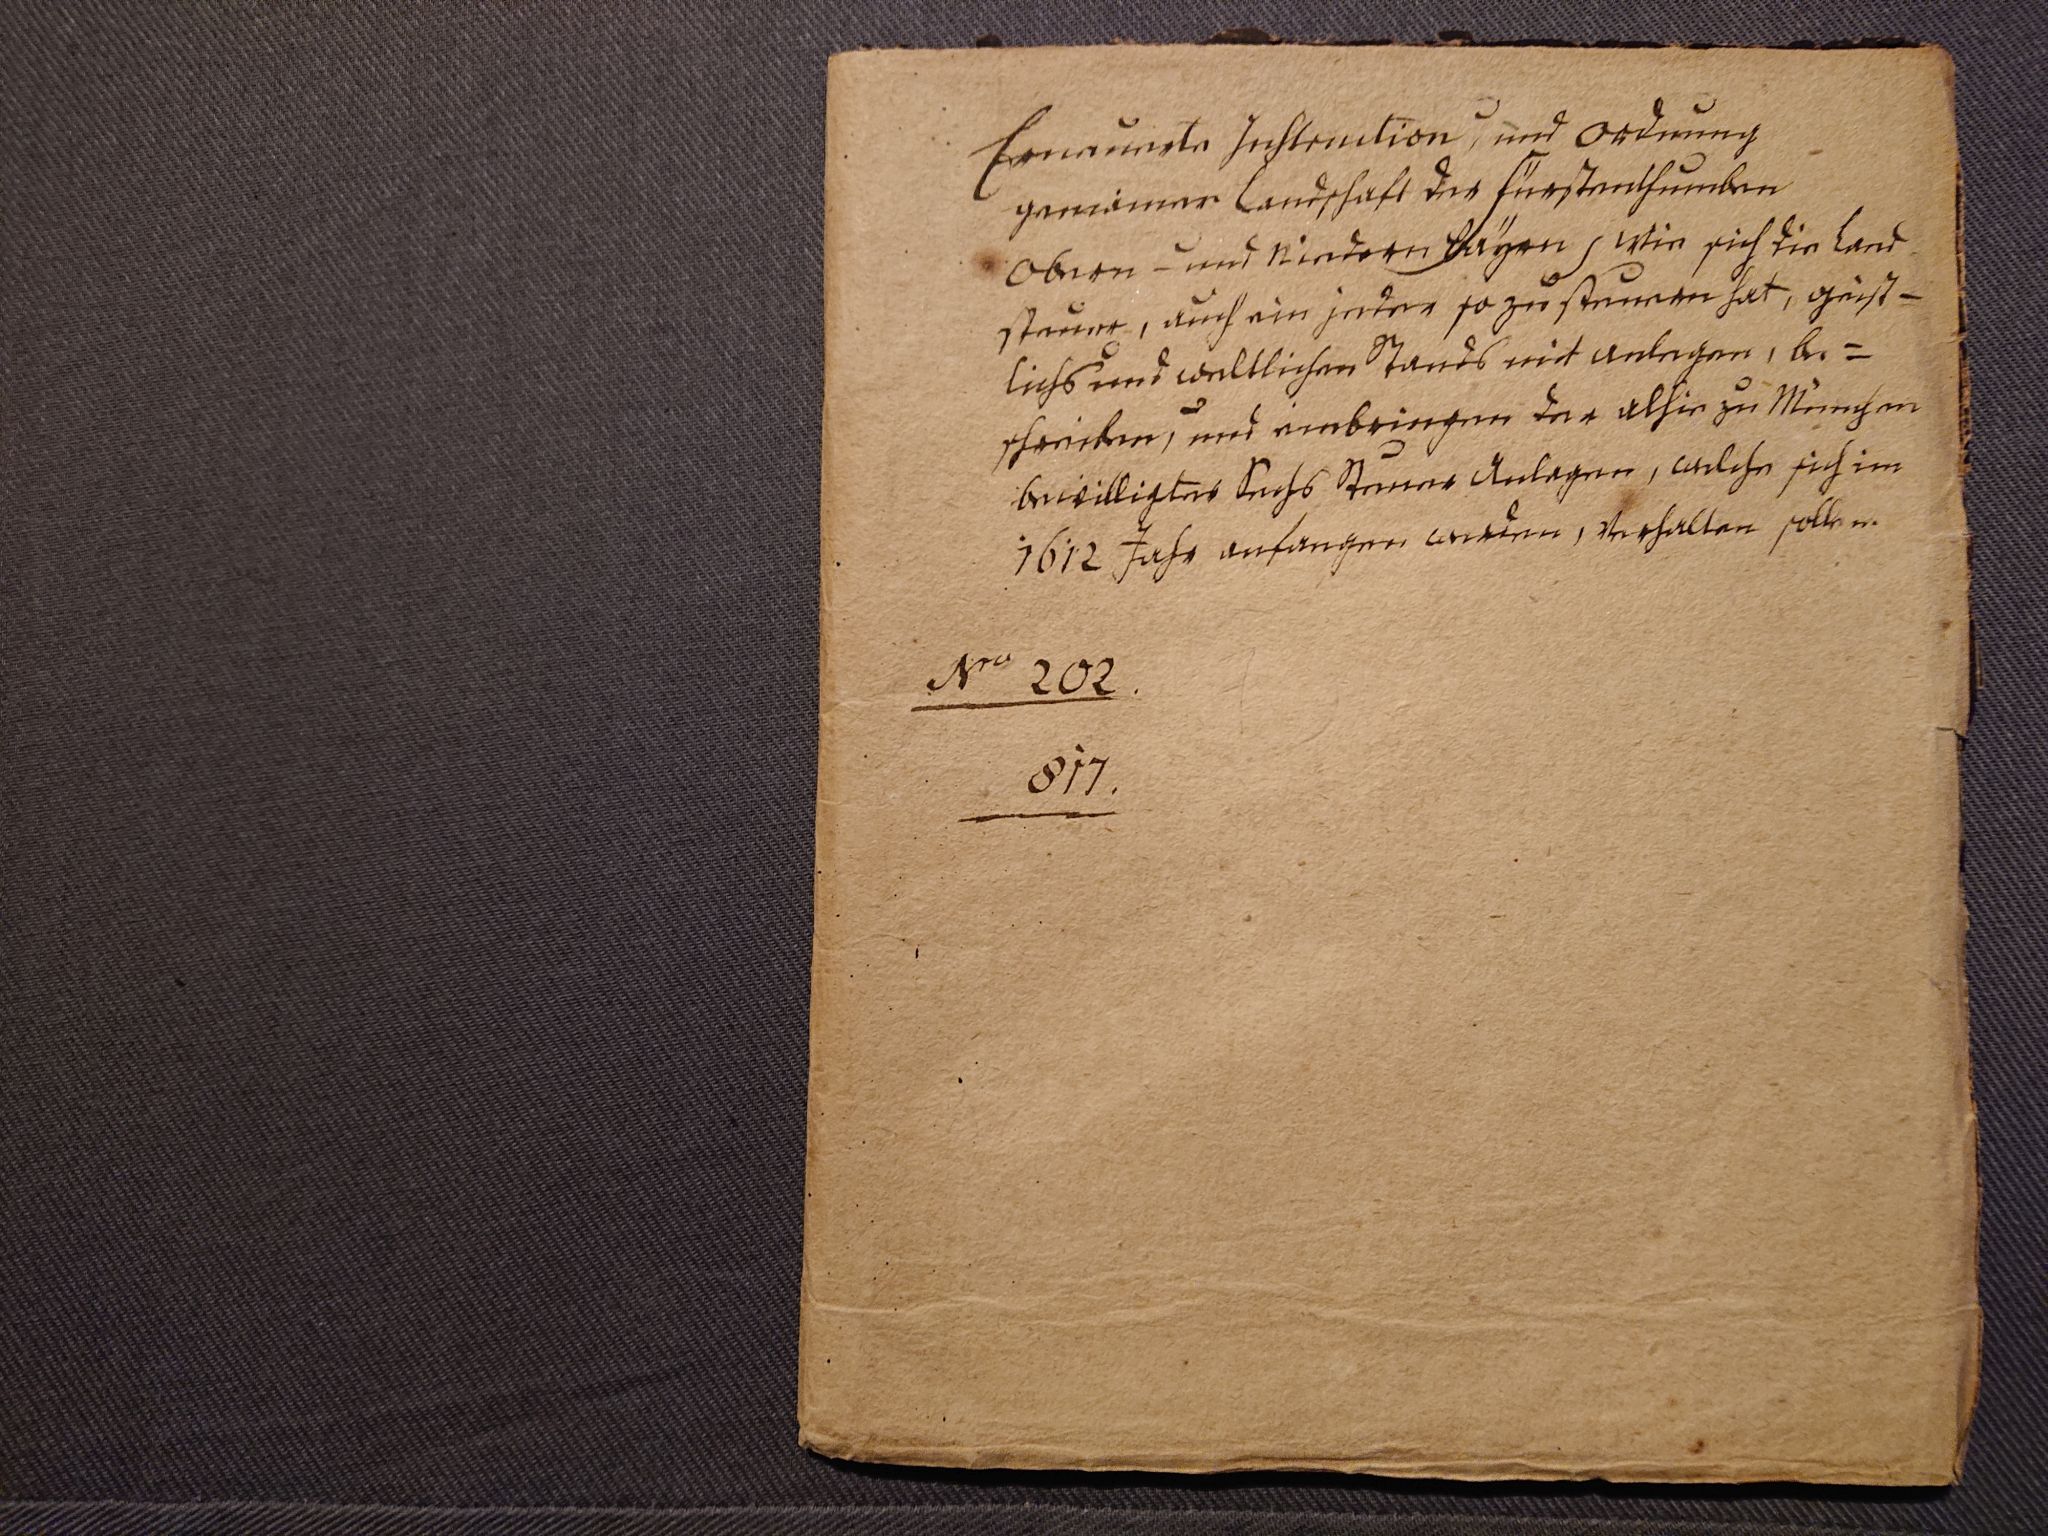 Ernaunrte Instruction, und Ordnung
gemainer Landschaft der Fürstenthumben
Obern- und Niedern Bayrn, wie sich die Land
steuer, auch ein jeder so zu steuern hat, geist-
lichs und weltlichen Stands mit anlegen, be=
schreiben, und einbringen der alhie zu München
bewilligter Sechs Steuer Anlagen, welche sich im
1612 Jahr anfangen werden, verhalten sollen.
Nro 202.
817.